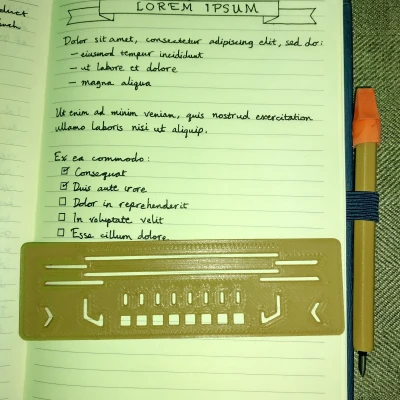 LOREM IPSUM
Dolor sit amet, consectetur adipiscing elit, sed do:
– eiusmod tempur incididunt
– ut labore et dolore
– magna aliqua
Ut enim ad minim veniam, quis nostrud exercitation
ullamo laboris nisi ut aliquip.
Ex ea commodo:
☑ Consequat
☑ Duis aute irore
☐ Dolor in reprehenderit
☐ In voluptate velit
☐ Esse cillum dolore